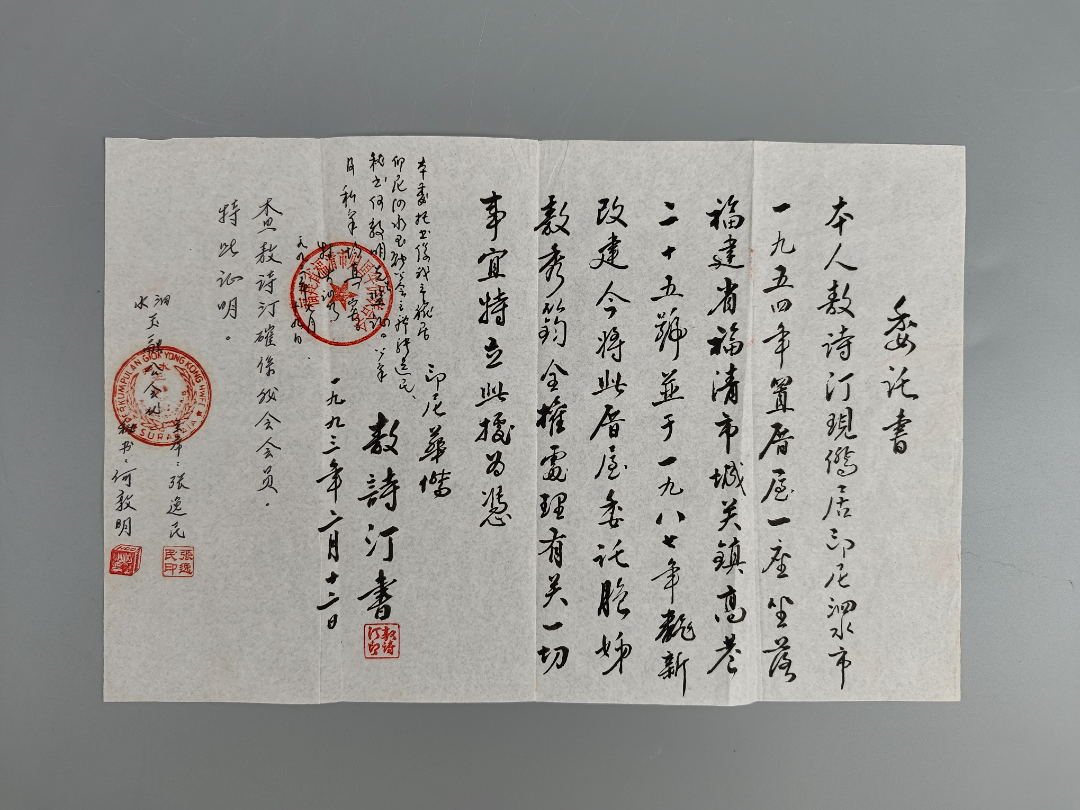 委託書
本人敖詩汀現僑居印尼泗水市
一九五四年置厝屋一座坐落
福建省福清市城关鎮髙巷
二十五號並于一九八七年龍新
改建今将此厝屋委託胞姊
敖秀筠全權處理有关一切
事宜特立此據为憑
印尼華僑
敖詩汀書
敖詩汀印
一九九三年六月十二日
本委托书係我主
印尼泗水玉融公会主席張逸民、
秘书何敦明
月
查敖诗汀確係我会会员。
特此证明。
泗水玉融公会
PERKUMPULAN GIOK YONG KONG HWEE
SURABAYA
主席：張逸民
張逸民印
秘书：何敦明